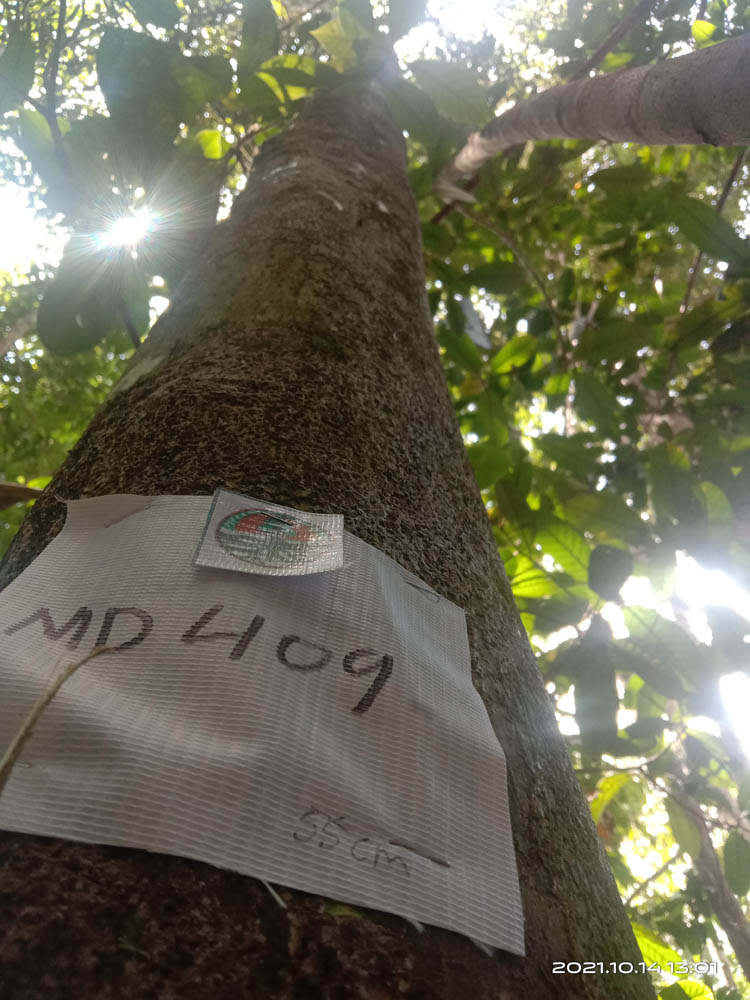 MD 409
55 cm
2021.10.14 13:01